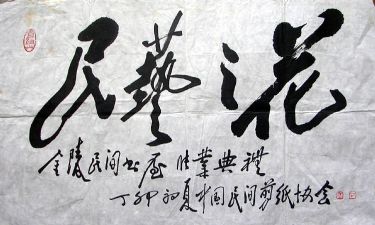 民藝之花
金陵民间书屋業典禮
丁卯初夏中国民间剪纸协会